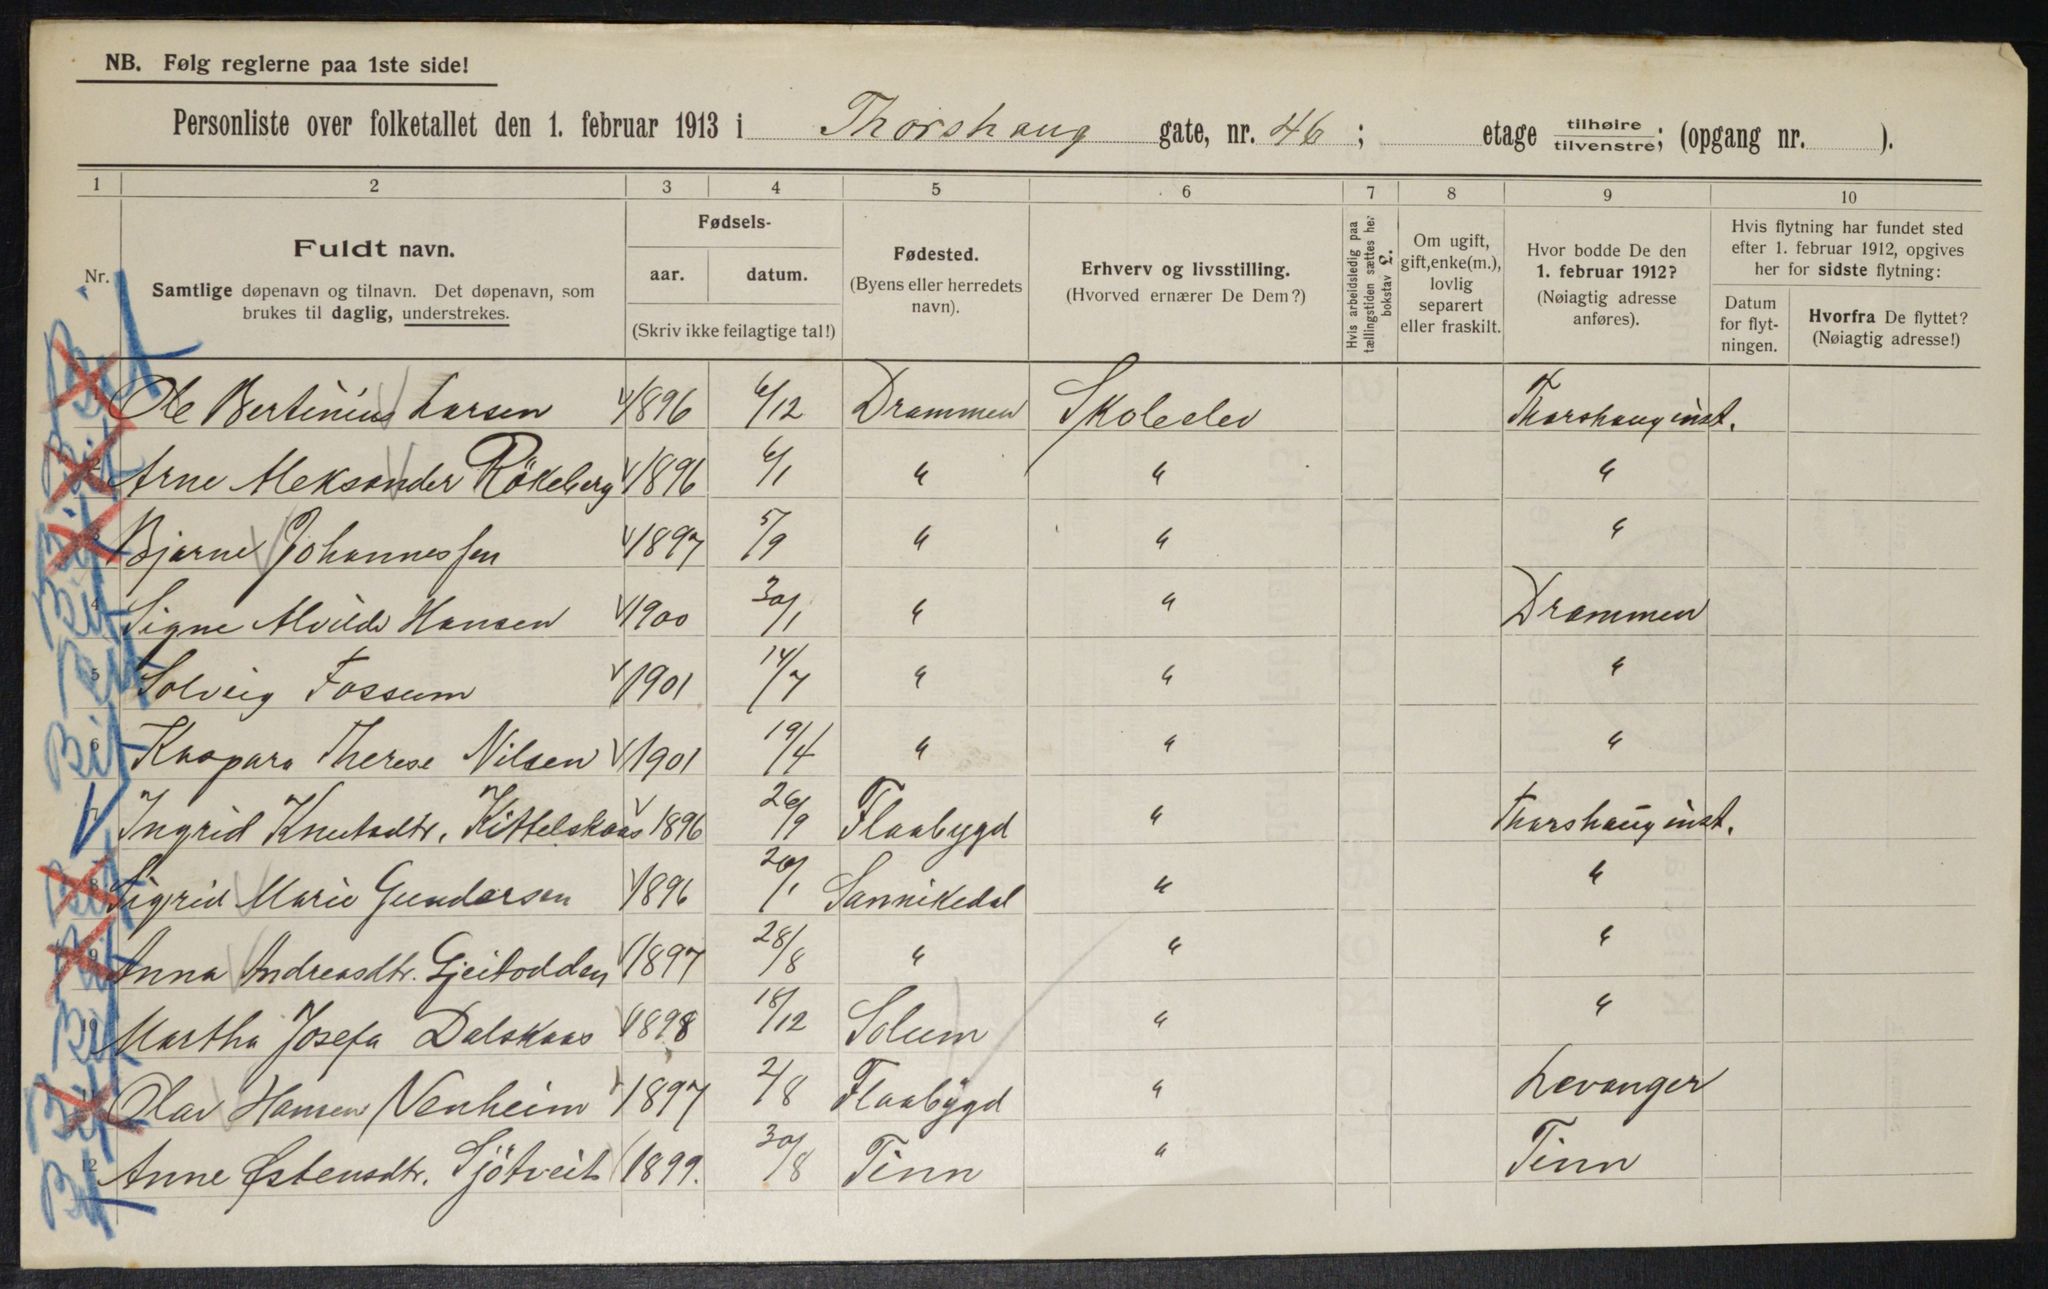 NB. Følg reglerne paa 1ste side!
Personliste over folketallet den 1. februar 1913 i Thorshaug gate, nr. 46; etage tilhøire/tilvenstre; (opgang nr. ).
1 2 3 4 5 6 7 8 9 10
Nr.
Fuldt navn.
Samtlige døpenavn og tilnavn. Det døpenavn, som
brukes til daglig, understrekes.
Fødsels-
aar. datum.
(Skriv ikke feilagtige tal!)
Fødested.
(Byens eller herredets
navn).
Erhverv og livsstilling.
(Hvorved ernærer De Dem?)
Hvis arbeidsledig paa
tællingstiden sættes her
bokstav L.
Om ugift,
gift, enke(m.),
lovlig
separert
eller fraskilt.
Hvor bodde De den
1. februar 1912?
(Nøiagtig adresse
anføres).
Hvis flytning har fundet sted
efter 1. februar 1912, opgives
her for sidste flytning:
Datum
for flyt-
ningen.
Hvorfra De flyttet?
(Nøiagtig adresse!)
Ole Bertinius Larsen 1896 6/12 Drammen Skoleelev Thorshaug inst.
Arne Aleksander Rökeberg 1896 6/1 " " "
3 Bjarne Johannessen 1897 5/9 " " "
4 Signe Alvilde Hansen 1900 30/1 " " Drammen
5 Solveig Fossum 1901 14/7 " " "
6 Kaspara Therese Nilsen 1901 19/4 " " "
7 Ingrid Knutsdtr. Kittelskaas 1896 26/9 Flaabygd " Thorshaug inst.
8 Sigrid Marie Gundersen 1896 26/1 Sannikedal " "
9 Anna Andreasdtr. Gjeitodden 1897 28/8 " " "
10 Martha Josefa Dalskaas 1898 18/12 Solum " "
11 Olav Hansen Venheim 1897 2/8 Flaabygd " Levanger
12 Anne Østensdtr. Sjötveit 1899. 30/8 Tinn " Tinn